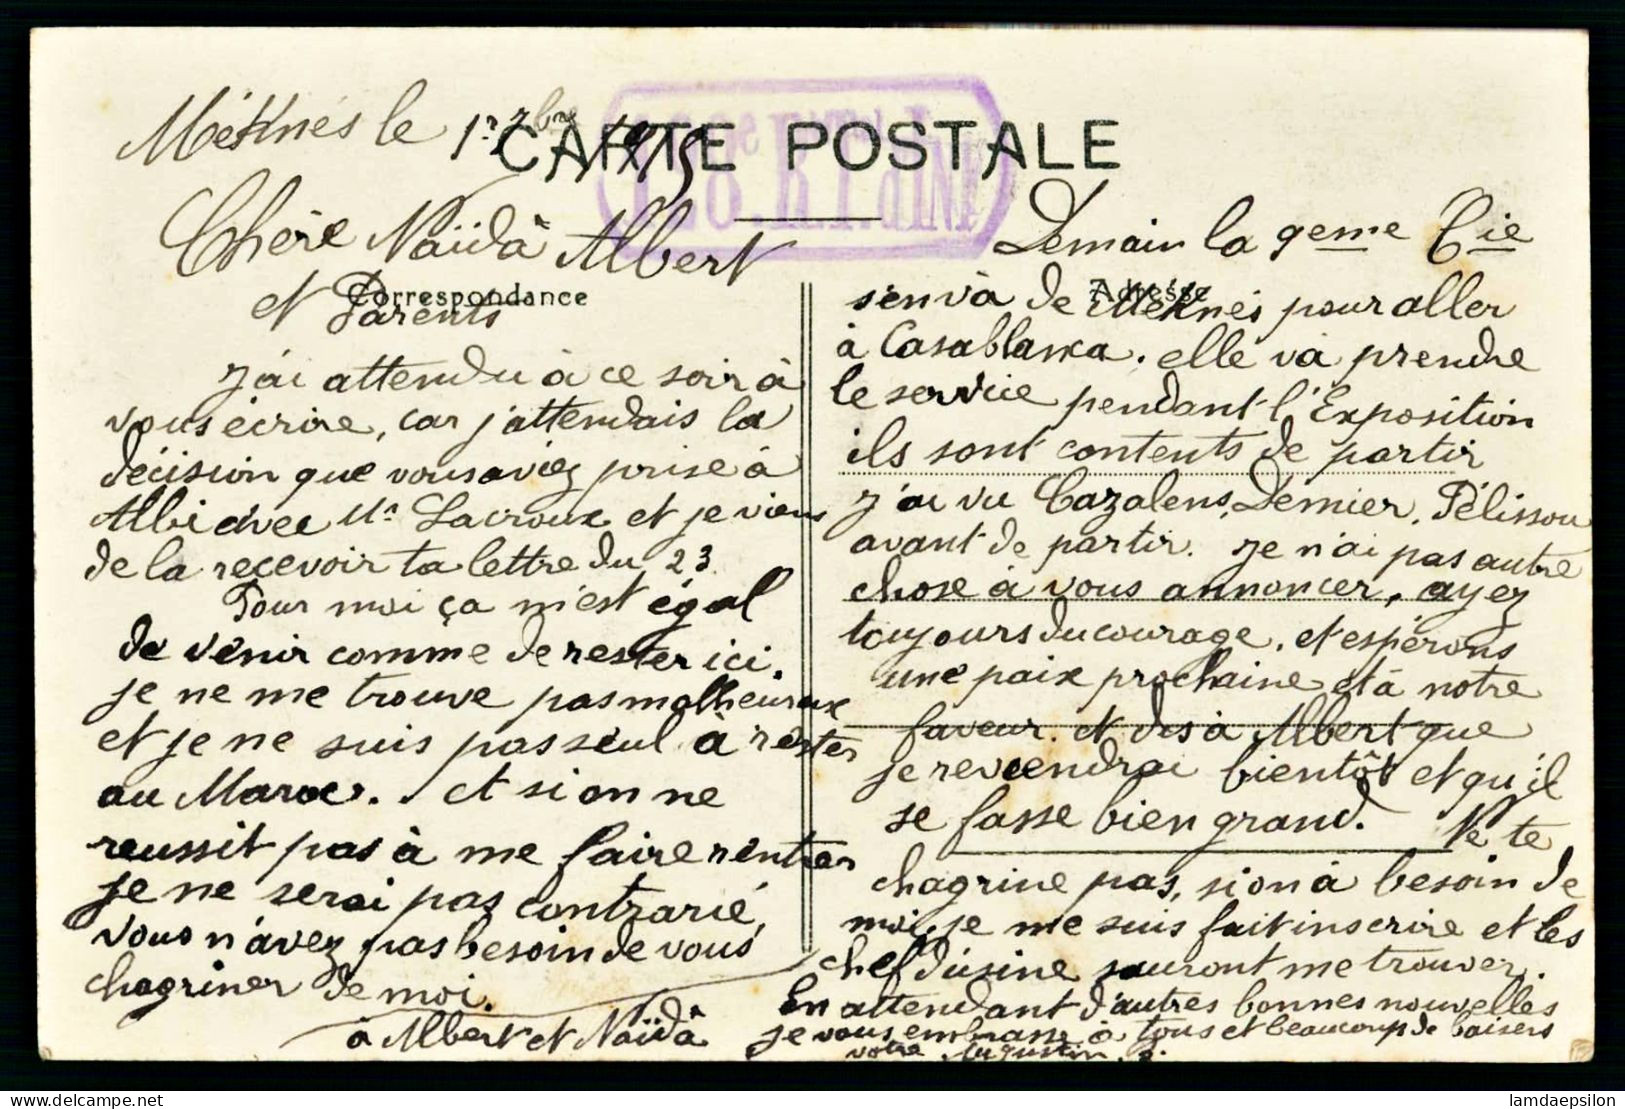 CARTE POSTALE
Méknés le 1er 7bre 1915
Chère Naïdâ Albert
et Parents
Correspondance
J'ai attendu à ce soir à
vous écrire, car j'attendais la
décision que vous aviez prise à
Albi avec Mr Lacroux et je viens
de la recevoir ta lettre du 23.
Pour moi ça m'est égal
de venir comme de rester ici.
je ne me trouve pas malheureux
et je ne suis pas seul à rester
au Maroc. . et si on ne
reussit pas à me faire rentrer
je ne serai pas contrarié,
vous n'avez pas besoin de vous
chagriner de moi.
à Albert et Naïdâ
Demain la 9eme Cie
Adresse
s'en và de Méknés pour aller
à Casablanca. elle và prendre
le service pendant l'Exposition
ils sont contents de partir
J'ai vu Cazalens, Dernier, Pélissou
avant de partir. Je n'ai pas autre
chose à vous annoncer, ayez
toujours du courage, et espérons
une paix prochaine et à notre
faveur. et dis à Albert que
je reviendrai bientôt et qu'il
se fasse bien grand. Ne te
chagrine pas, si on à besoin de
moi, je me suis fait inscrire et les
chef d'usine sauront me trouver.
En attendant d'autres bonnes nouvelles
je vous embrasse à tous et beaucoup de baisers
votre Augustin
delcampe.net
lamdaepsilon